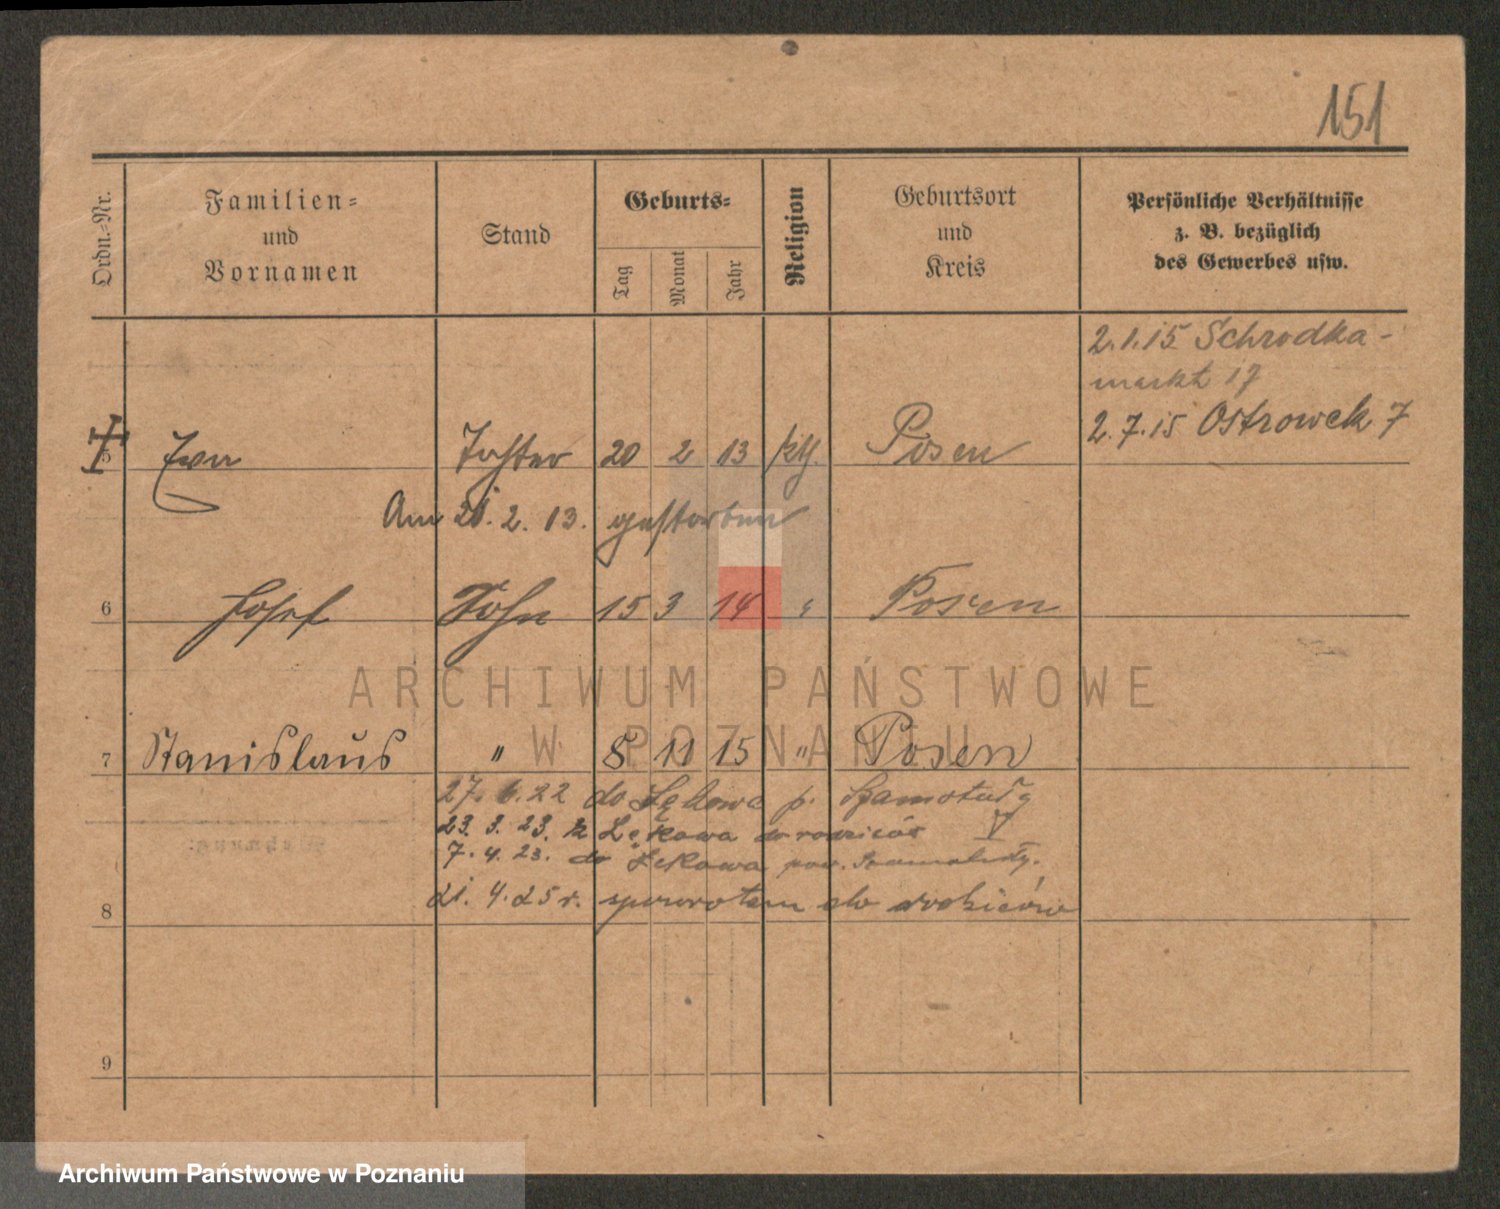 151
Ordn.-Nr.
Familien-
und
Vornamen
Stand
Geburts-
Tag
Monat
Jahr
Religion
Geburtsort
und
Kreis
Persönliche Verhältnisse
z. B. bezüglich
des Gewerbes usw.
2.1.15 Schrodka-
markt 17
2.7.15 Ostrowek 7
5 Tochter 20 2 13 kth. Posen
Am 21. 2. 13. gestorben
6 Josef Sohn 15 3 14 " Posen
7 Stanislaus " 8 11 15 " Posen
27. 6. 22 do Lękowa p. Szamotuły
23. 3. 23. z Lękowa do rodziców
7. 4. 23. do Lekowa pow. Szamotuły.
21. 4. 25 r. spowrotem do rodziców
8
9
ARCHIWUM PAŃSTWOWE
W POZNANIU
Archiwum Państwowe w Poznaniu